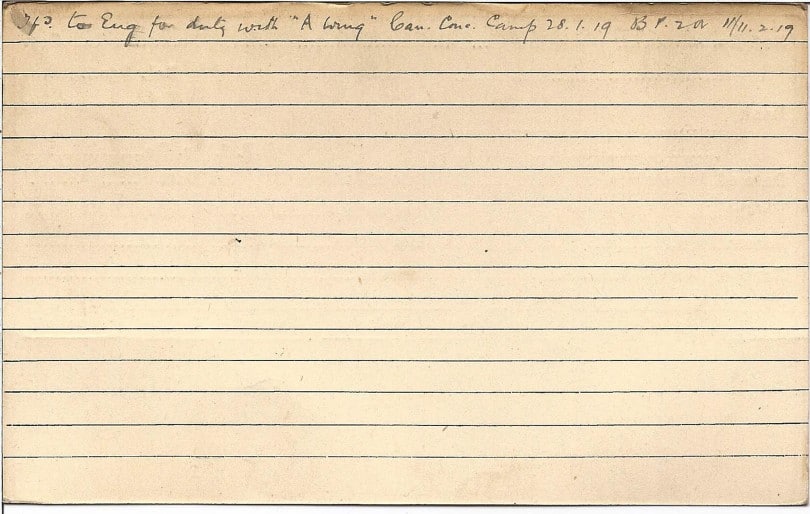 to Eng for duty with "A Wing" Can. Conc. Camp 28.1.19 11/11.2.19